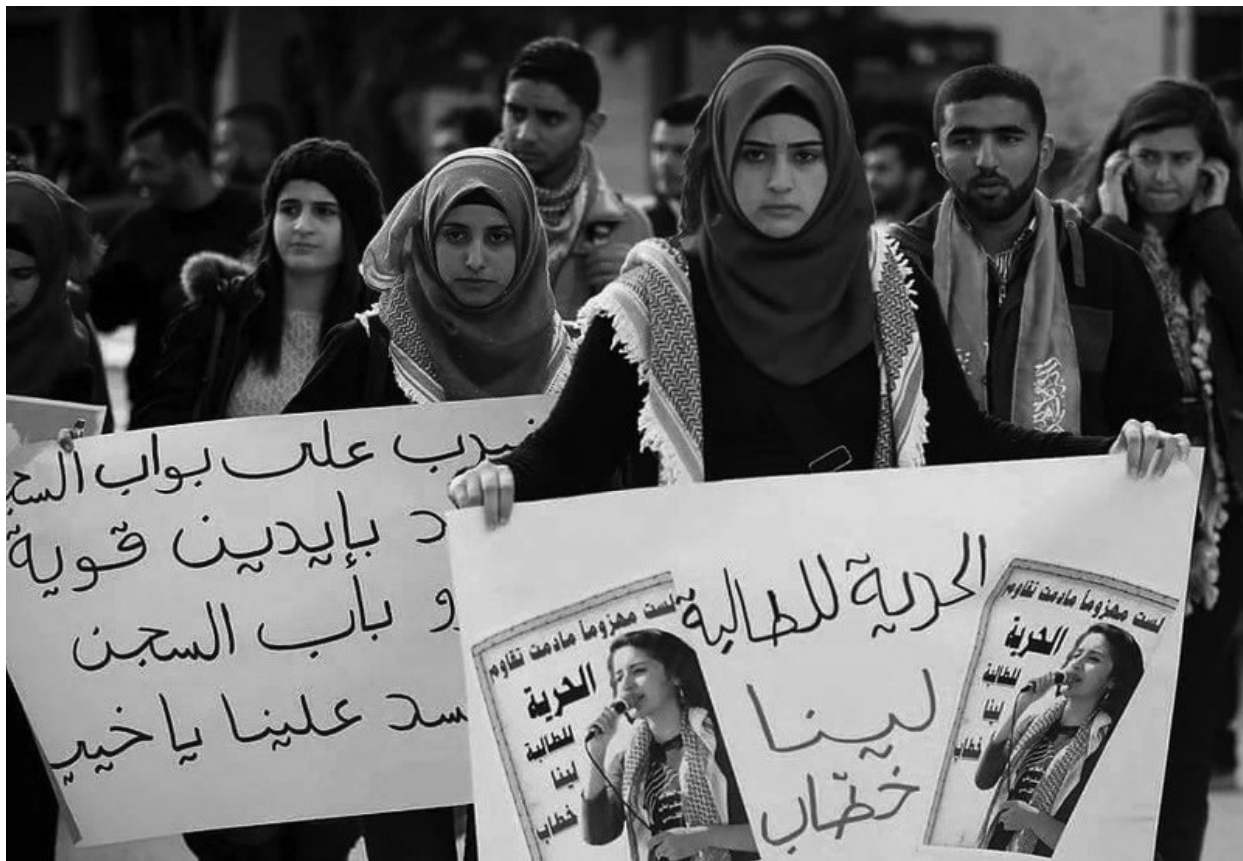 على بواب السج
بإيدين قوية
باب السجن
علينا يا خيي
الحرية للطالبة
لينا
خطاب
لست مهزوماً مادمت تقاوم
الحرية
للطالبة
لينا
خطاب
لست مهزوماً مادمت تقاوم
الحرية
للطالبة
لينا
خطاب